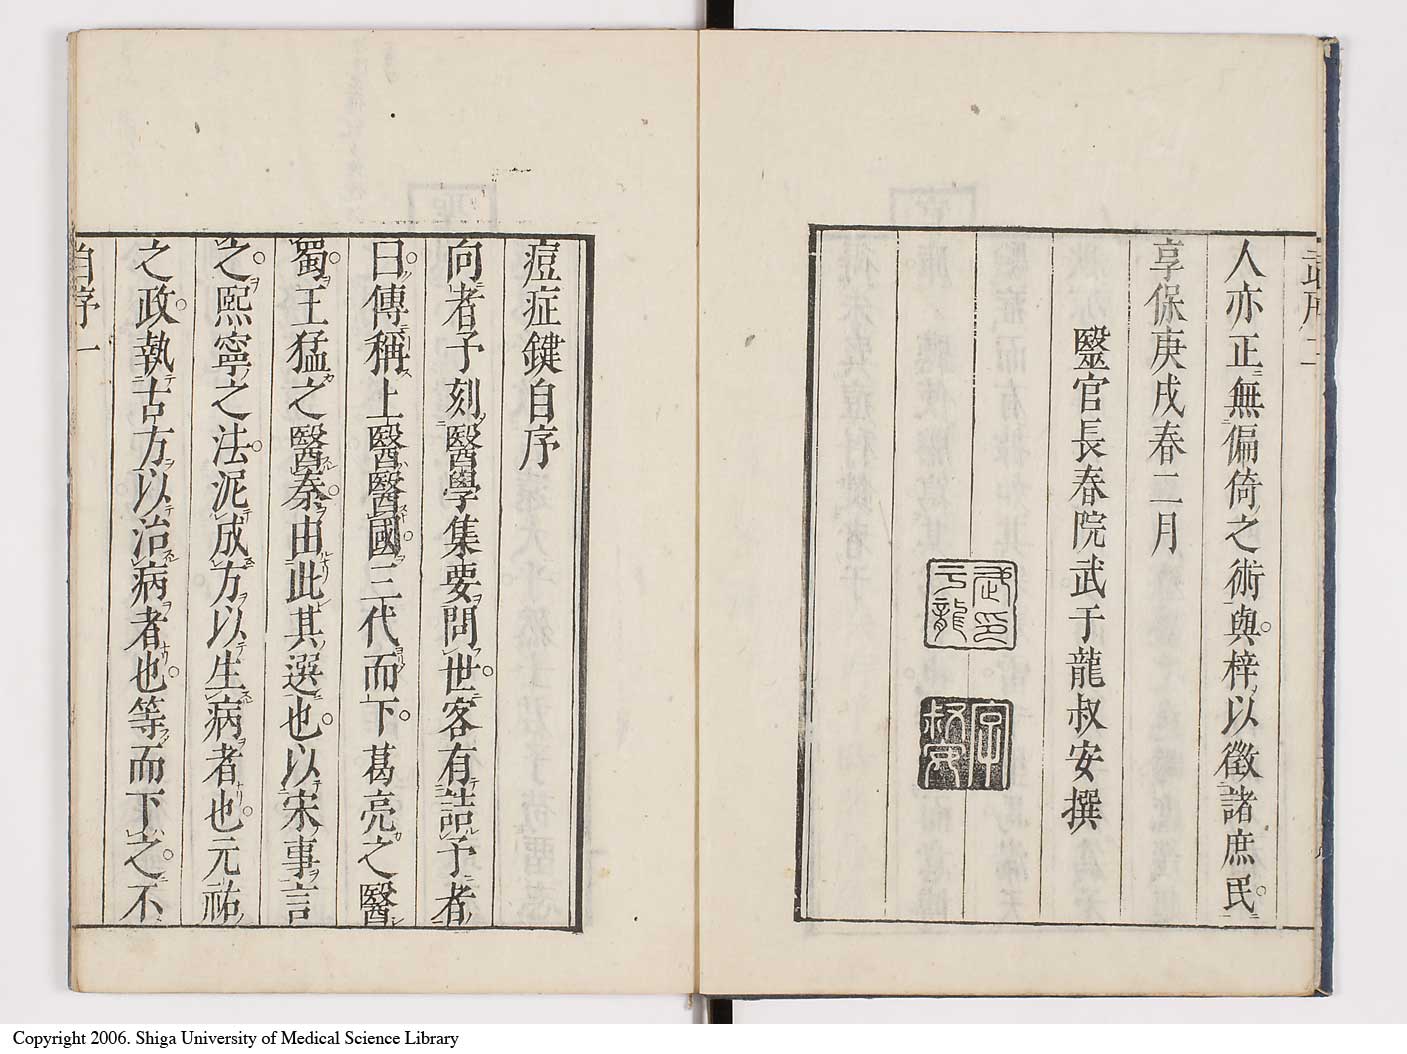 人亦正無偏倚之術與梓以徵諸庶民
享保庚戌春二月
醫官長春院武于龍叔安撰
武印于龍
字叔安
痘症鍵自序
向者予刻醫學集要問世客有詰予者
曰傳稱上醫醫國三代而下葛亮之醫
蜀王猛之醫秦由此其選也以宋事言
之熙寧之法泥成方以生病者也元祐
之政執古方以治病者也等而下之不
自序 一
Copyright 2006. Shiga University of Medical Science Library